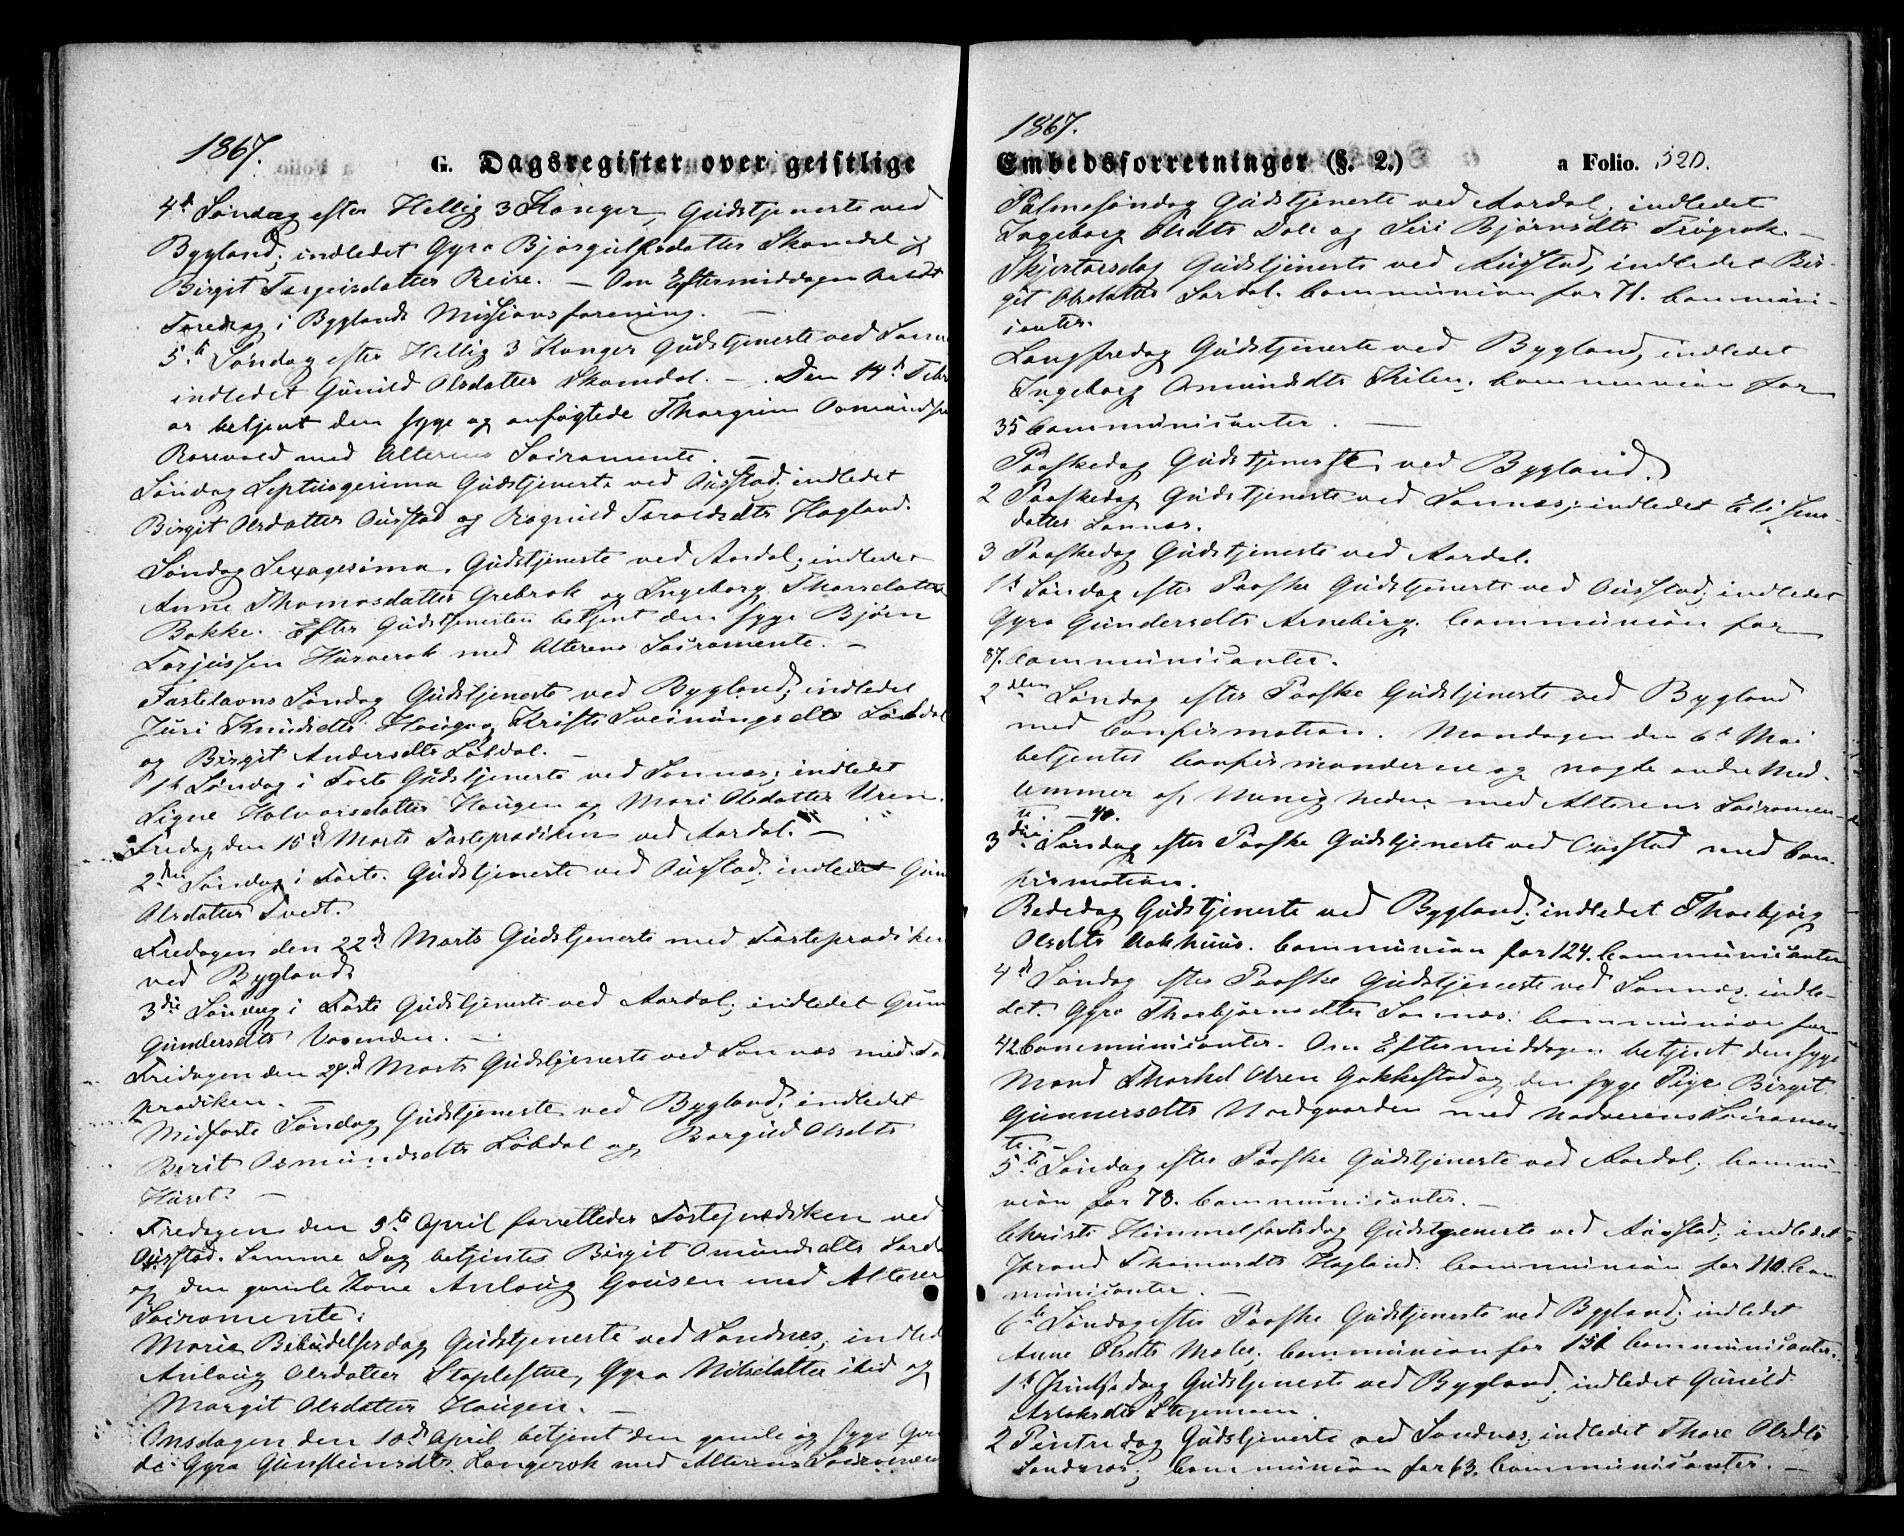 1867.
G. Dagsregister over geistlige
4de Søndag efter Hellig 3 Konger, Gudstjeneste ved
Bygland; indledet Gyro Bjørgulfsdatter Skomdal og
Birgit Targeisdatter Reire. — Om Eftermiddagen holdt
Foredrag i Byglands Missionsforening. —
5te Søndag efter Hellig 3 Konger Gudstjeneste ved Sannæs
indledet Gunild Olsdatter Skomdal. — Den 14de Febr
er betjent den syge og anfægtede Thorgrim Osmundsen
med Alterens Sacramente. —
Søndag Septuagesima Gudstjeneste ved Ousstad; indledet
Birgit Olsdatter Ousstad og Ragnild Taraldsdtr Hagland.
Søndag Sexagesima. Gudstjeneste ved Aardal; indledet
Anne Thomasdatter Grebrok og Ingeborg Thorsdatter
Bakke. Efter Gudstjenesten betjent den syge Bjørn
Torjussen Hurverok med Alterens Sacramente. —
Fastelavns Søndag Gudstjeneste ved Bygland; indledet
Juri Knudsdtr Hougo, Kristi Sveinungsdtr Lubdal
og Birgit Andersdtr Løbdal. —
1ste Søndag i Faste Gudstjeneste ved Sannæs; indledet
Signe Halvorsdatter Hougen og Mari Olsdatter Uren.
Fredag den 15de Marts Fasteprædiken ved Aardal. —
2den Søndag i Faste. Gudstjeneste ved Ousstad; indledet Gun
Olsdatter Tvedt.
Fredagen den 22de Marts Gudstjeneste med Fasteprædiken
ved Bygland
3die Søndag i Faste Gudstjeneste ved Aardal; indledet Gun
Gundersdtr Vasenden. —
Fredagen den 29de Marts Gudstjeneste ved Sannæs med Fa
prædiken. —
Midfaste Søndag Gudstjeneste ved Bygland; indledet
Berit Osmundsdtr Løbdal og Borgild Olsdtr
Huset. —
Fredagen den 5te April forrettedes Fasteprædiken ved
Ousstad. Samme Dag betjentes Birgit Osmundsdtr Sarda
og den gamle Kone Anlaug Gousen med Alterens
Sacramente.
Maria Bebudelsesdag Gudstjeneste ved Sandnes; indled
Anlaug Olsdatter Staplestue, Gyro Nilsdatter ibid og
Margit Olsdatter Hougen. —
Onsdagen den 10de April betjent den gamle og syge
Gyro Gunsteinsdtr Langerok med Alterens Sacramente
1867.
Embedsforretninger (§. 2.) a Folio. 320.
Palmesøndag Gudstjeneste ved Aardal; indledet
Ingeborg Olsdtr Dale og Siri Bjørnsdtr Frøgrok. —
Skjertorsdag Gudstjeneste ved Ousstad, indledet Bir-
git Olsdatter Sardal. Communion for 71. Communi-
canter.
Langfredag Gudstjeneste ved Bygland, indledet
Ingeborg Osmundsdtr Kilen. Communion for
35 Communicanter. —
Paaskedag Gudstjeneste ved Bygland.
2 Paaskedag Gudstjeneste ved Sannæs; indledet Eli Jens-
datter Sannæs.
3 Paaskedag Gudstjeneste ved Aardal.
1ste Søndag efter Paaske Gudstjeneste ved Ousstad; indledet
Gyro Gundersdtr Arneberg. Communion for
87. Communicanter.
2den Søndag efter Paaske Gudstjeneste ved Bygland
med Confirmation. Mandagen den 6te Mai
betjentes Confirmanderne og nogle andre Med-
lemmer af Menigheden med Alterens Sacramen-
te. — 40.
3die Søndag efter Paaske Gudstjeneste ved Ousstad med Con-
firmation.
Bededag Gudstjeneste ved Bygland; indledet Thorbjørg
Olsdtr Nokhuus. Communion for 124. Communicanter
4de Søndag efter Paaske Gudstjeneste ved Sannæs. indle-
det. Gyro Thorbjørnsdtr Sannæs. Communion for
42 Communicanter. Om Eftermiddagen betjent den syge
Mand Thorkel Olsen Gakkestad og den syge Pige Birgit
Gunnersdtr Nordgaarden med Nadverens Sacramen-
te. —
5te Søndag efter Paaske Gudstjeneste ved Aardal; Commu-
nion for 78. Communicanter. —
Christi Himmelfartsdag Gudstjeneste ved Ousstad; indledet
Jorand Thomasdtr Hagland. Communion for 110. Com
municanter. —
6te Søndag efter Paaske Gudstjeneste ved Bygland; indledet
Anne Olsdtr Moler. Communion for 151 Communicanter.
1ste Pintsedag Gudstjeneste ved Bygland; indledet Gunild
Aslaksdtr Stegemoen.
2 Pintsedag Gudstjeneste ved Sandnæs, indledet Thore Olsdtr
Sandnæs; Communion for 63. Communicanter. —